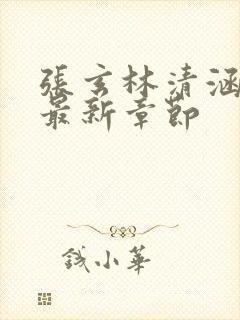 張玄林清涵
最新章節
錢小華